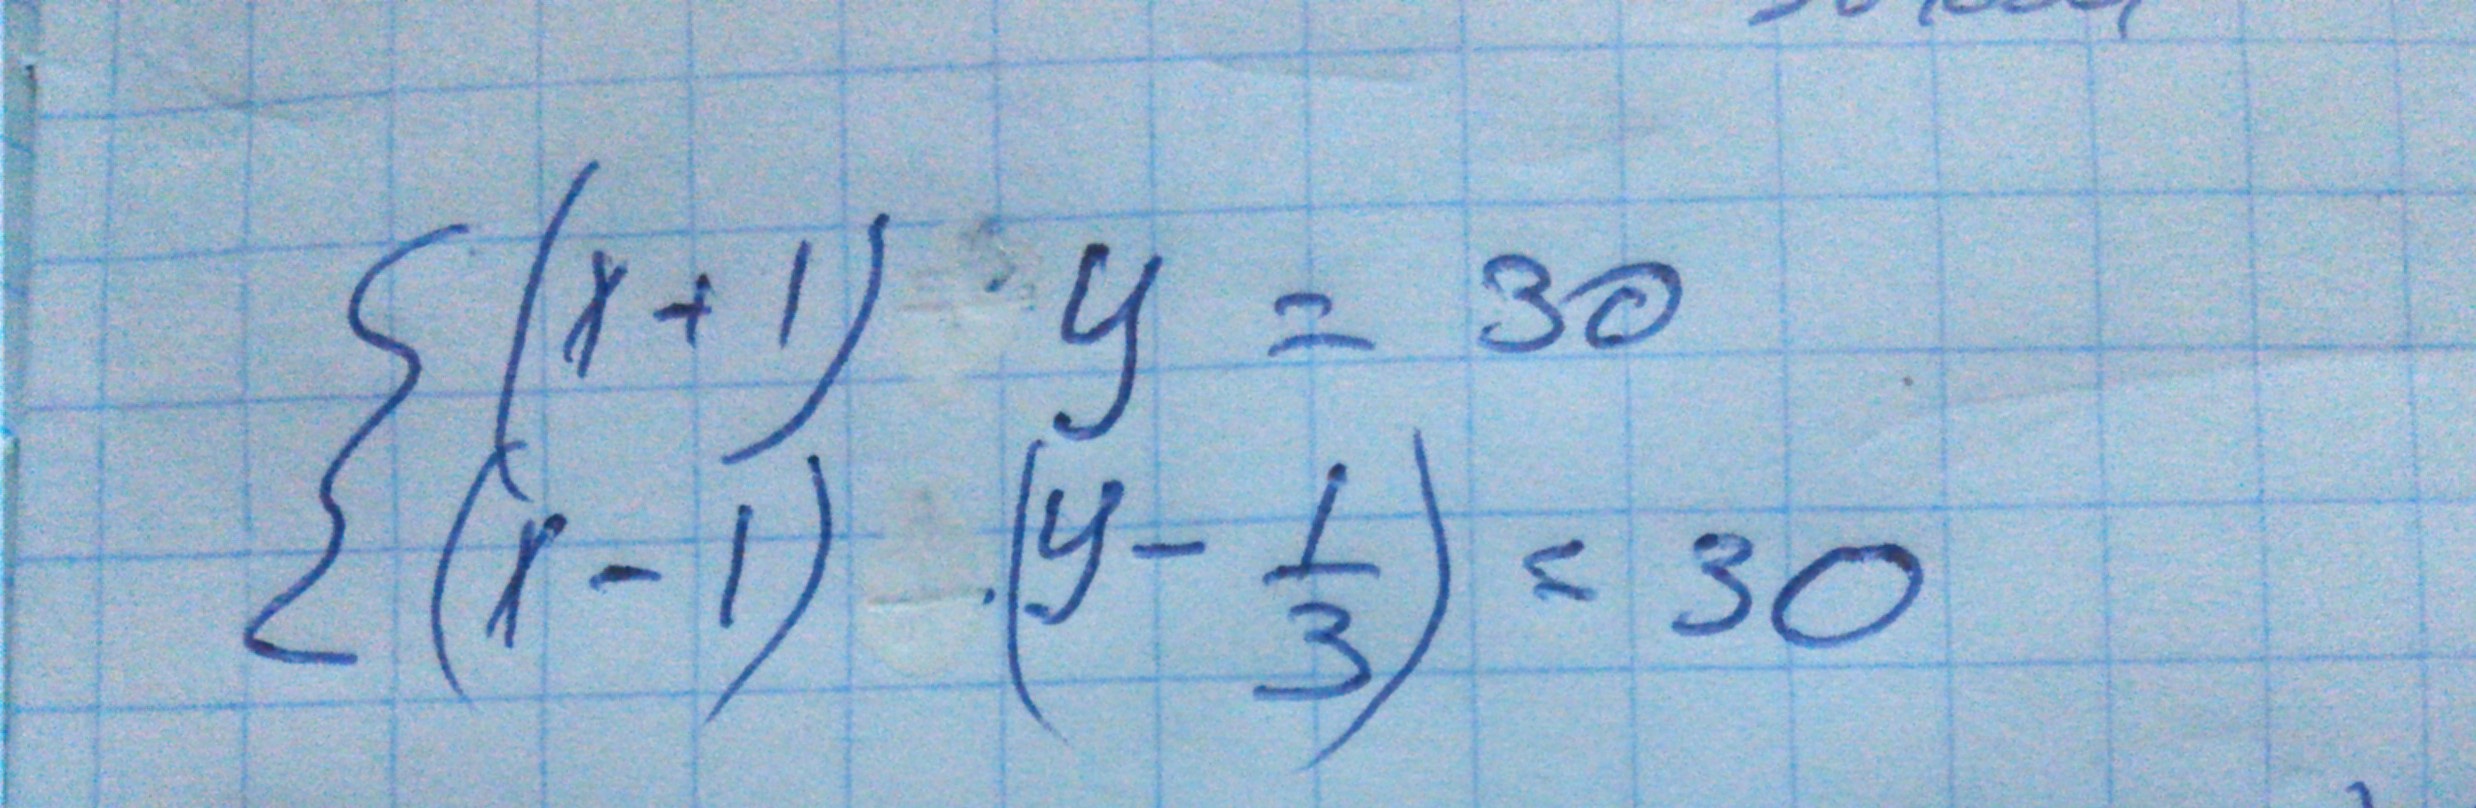 (x+1) · y = 30
(x-1) · (y - 1/3) = 30